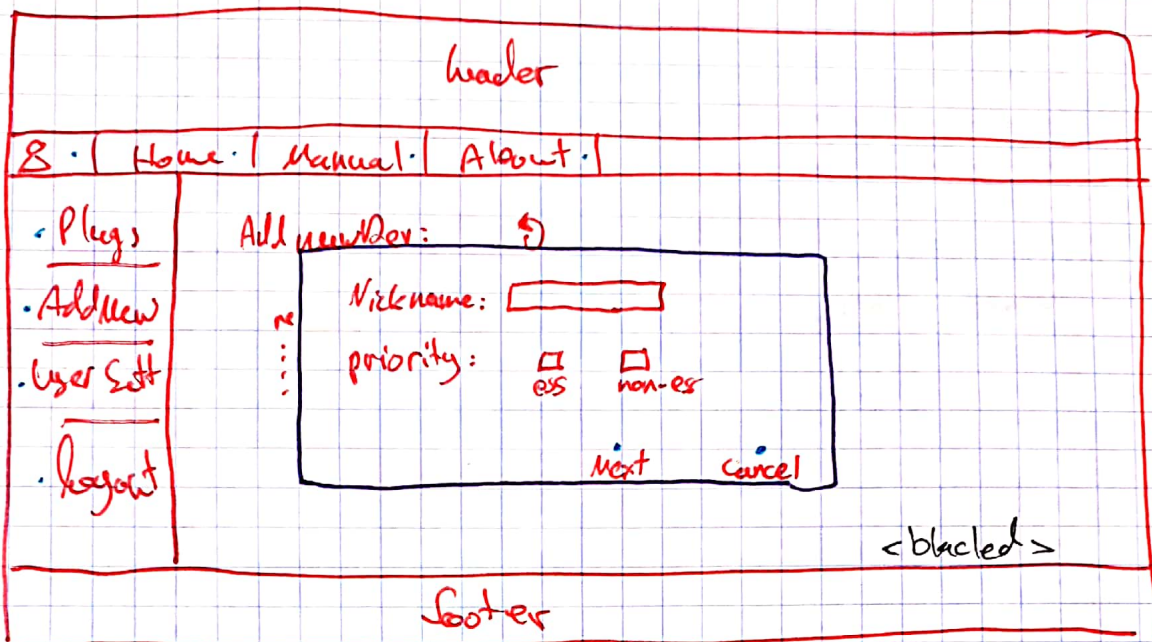 header
Home
Manual
About
Plugs
Add New
User Sett
Logout
Add newDev:
Nickname:
priority:
ess
non-ess
Next
Cancel
<blacked>
footer